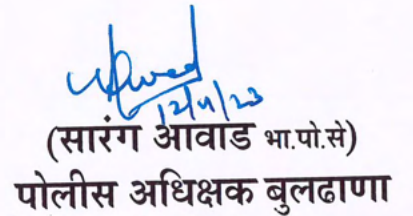 12/4/23
(सारंग आवाड भा.पो.से)
पोलीस अधिक्षक बुलढाणा